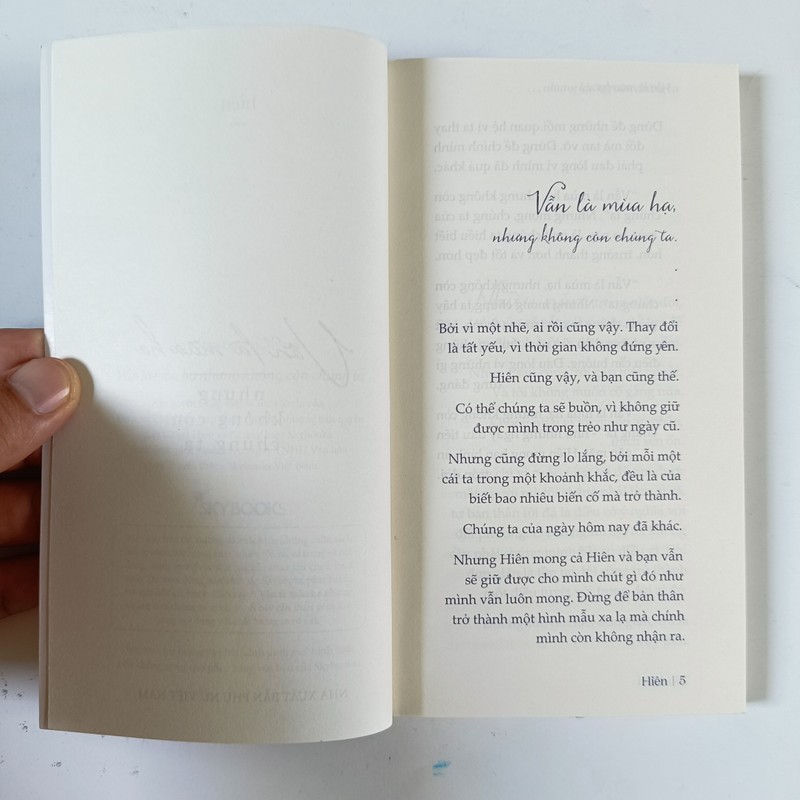 Vẫn là mùa hạ,
nhưng không còn chúng ta.
.
.
Bởi vì một nhẽ, ai rồi cũng vậy. Thay đổi
là tất yếu, vì thời gian không đứng yên.
Hiên cũng vậy, và bạn cũng thế.
Có thể chúng ta sẽ buồn, vì không giữ
được mình trong trẻo như ngày cũ.
Nhưng cũng đừng lo lắng, bởi mỗi một
cái ta trong một khoảnh khắc, đều là của
biết bao nhiêu biến cố mà trở thành.
Chúng ta của ngày hôm nay đã khác.
Nhưng Hiên mong cả Hiên và bạn vẫn
sẽ giữ được cho mình chút gì đó như
mình vẫn luôn mong. Đừng để bản thân
trở thành một hình mẫu xa lạ mà chính
mình còn không nhận ra.
Hiên | 5